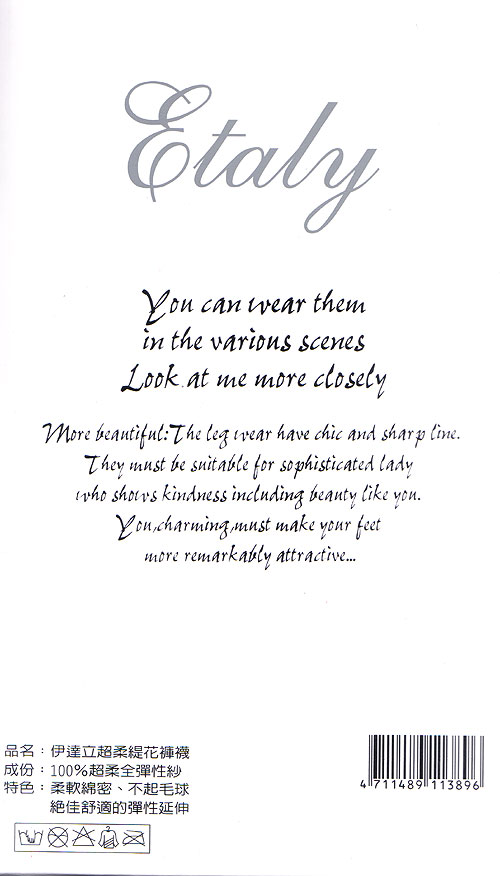 Etaly
You can wear them
in the various scenes
Look at me more closely
More beautiful:The leg wear have chic and sharp line.
They must be suitable for sophisticated lady
who shows kindness including beauty like you.
You,charming,must make your feet
more remarkably attractive...
品名：伊達立超柔緹花褲襪
成份：100%超柔全彈性紗
特色：柔軟綿密、不起毛球
絕佳舒適的彈性延伸
4 711489 113896